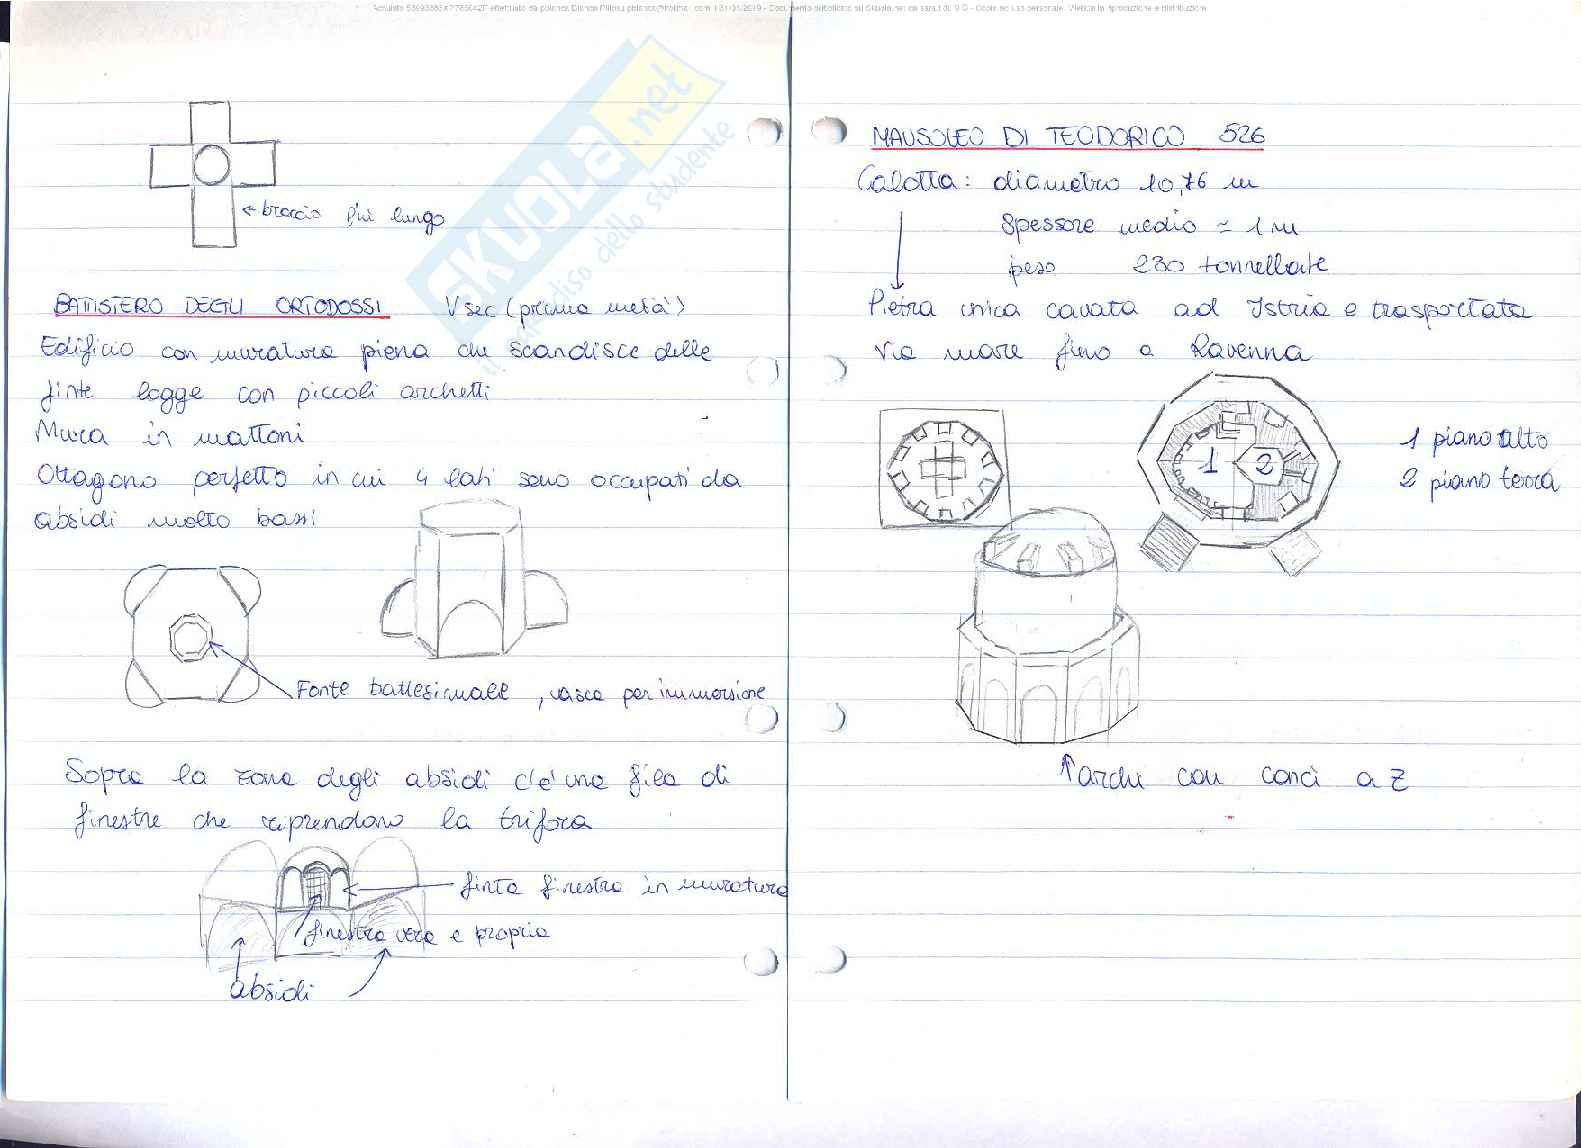 ← braccio più lungo
BATTISTERO DEGLI ORTODOSSI V sec (prima metà)
Edificio con muratura piena che scandisce delle
finte logge con piccoli archetti
Mura in mattoni
Ottagono perfetto in cui 4 lati sono occupati da
absidi molto bassi
Fonte battesimale, vasca per immersione
Sopra la zona degli absidi c'è una fila di
finestre che riprendono la trifora
finta finestra in muratura
finestra vera e propria
absidi
MAUSOLEO DI TEODORICO 526
Calotta: diametro 10,76 m
spessore medio ≃ 1 m
peso 230 tonnellate
Pietra unica cavata ad Istria e trasportata
via mare fino a Ravenna
1 2
1 piano alto
2 piano terra
↑ archi con conci a Z
SKUOLA.net
il paradiso dello studente